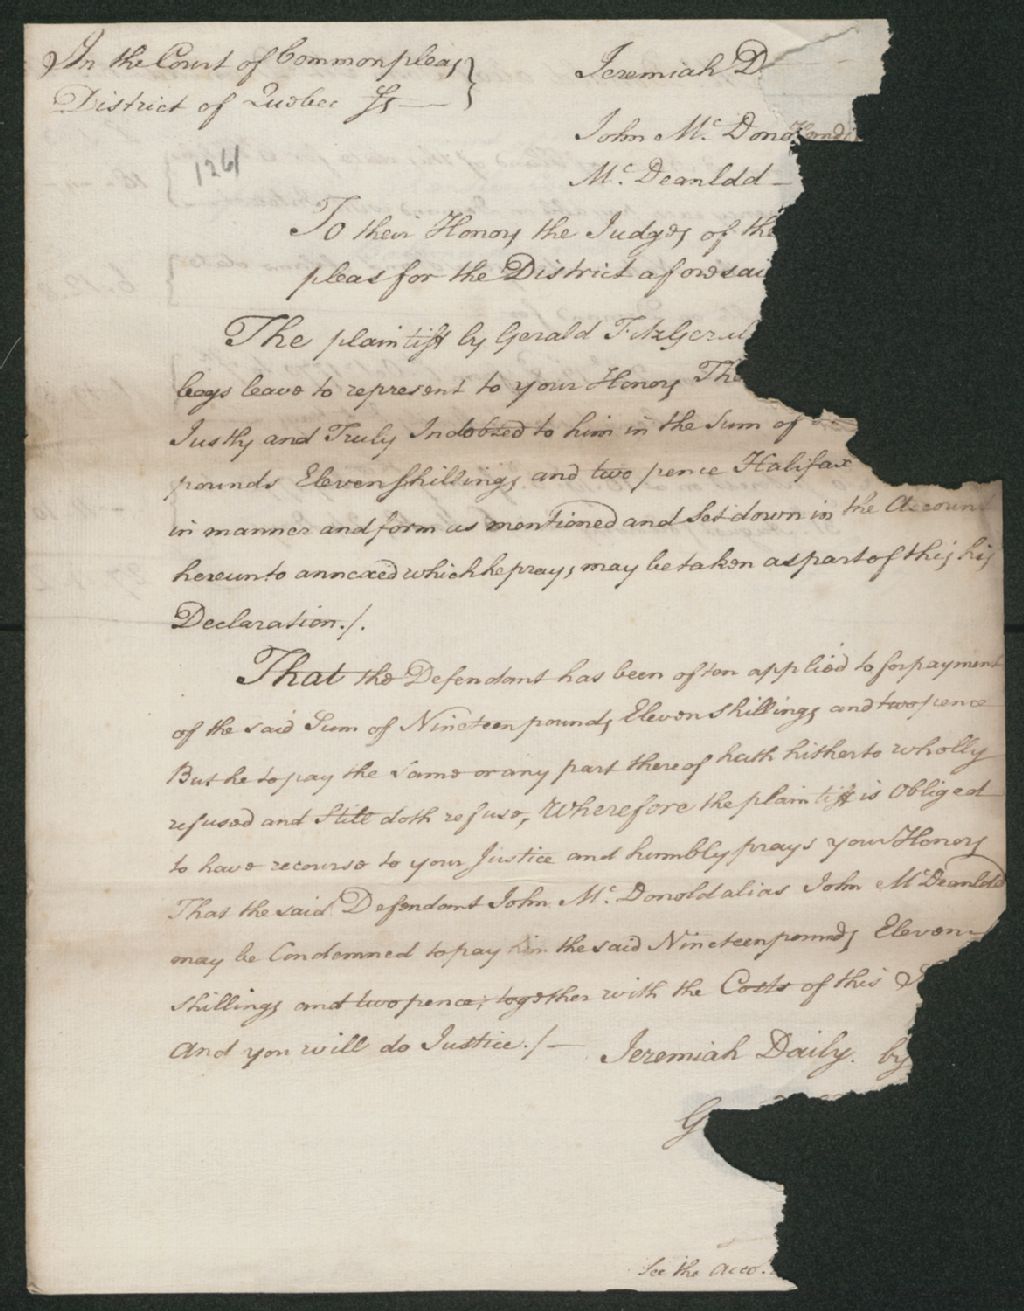 In the Court of Commonpleas
District of Quebec Ss
1261
Jeremiah D
John Mc. Dono
Mc. Deanldd
To their Honors the Judges of the
pleas for the District aforesai
The plaintiff by Gerald FitzGeral
begs leave to represent to your Honors Tha
Justly and Truly Indebted to him in the Sum of
pounds Eleven Shillings and two pence Halifax
in manner and form as mentioned and Set down in the Account
hereunto annexed which he prays may be taken as part of this his
Declaration./.
That the Defendant has been often applied to for payment
of the said Sum of Nineteen pounds Eleven shillings and two pence
But he to pay the same or any part thereof hath hitherto wholly
refused and Still doth refuse, Wherefore the plaintiff is Obliged
to have recourse to your Justice and humbly prays your Honors
That the said Defendant John Mc. Donold alias John Mc Deanldd
may be Condemned to pay him the said Nineteen pounds Eleven
shillings and two pence, together with the Costs of this S
And you will do Justice./—
Jeremiah Daily. by
G
See the Acco.